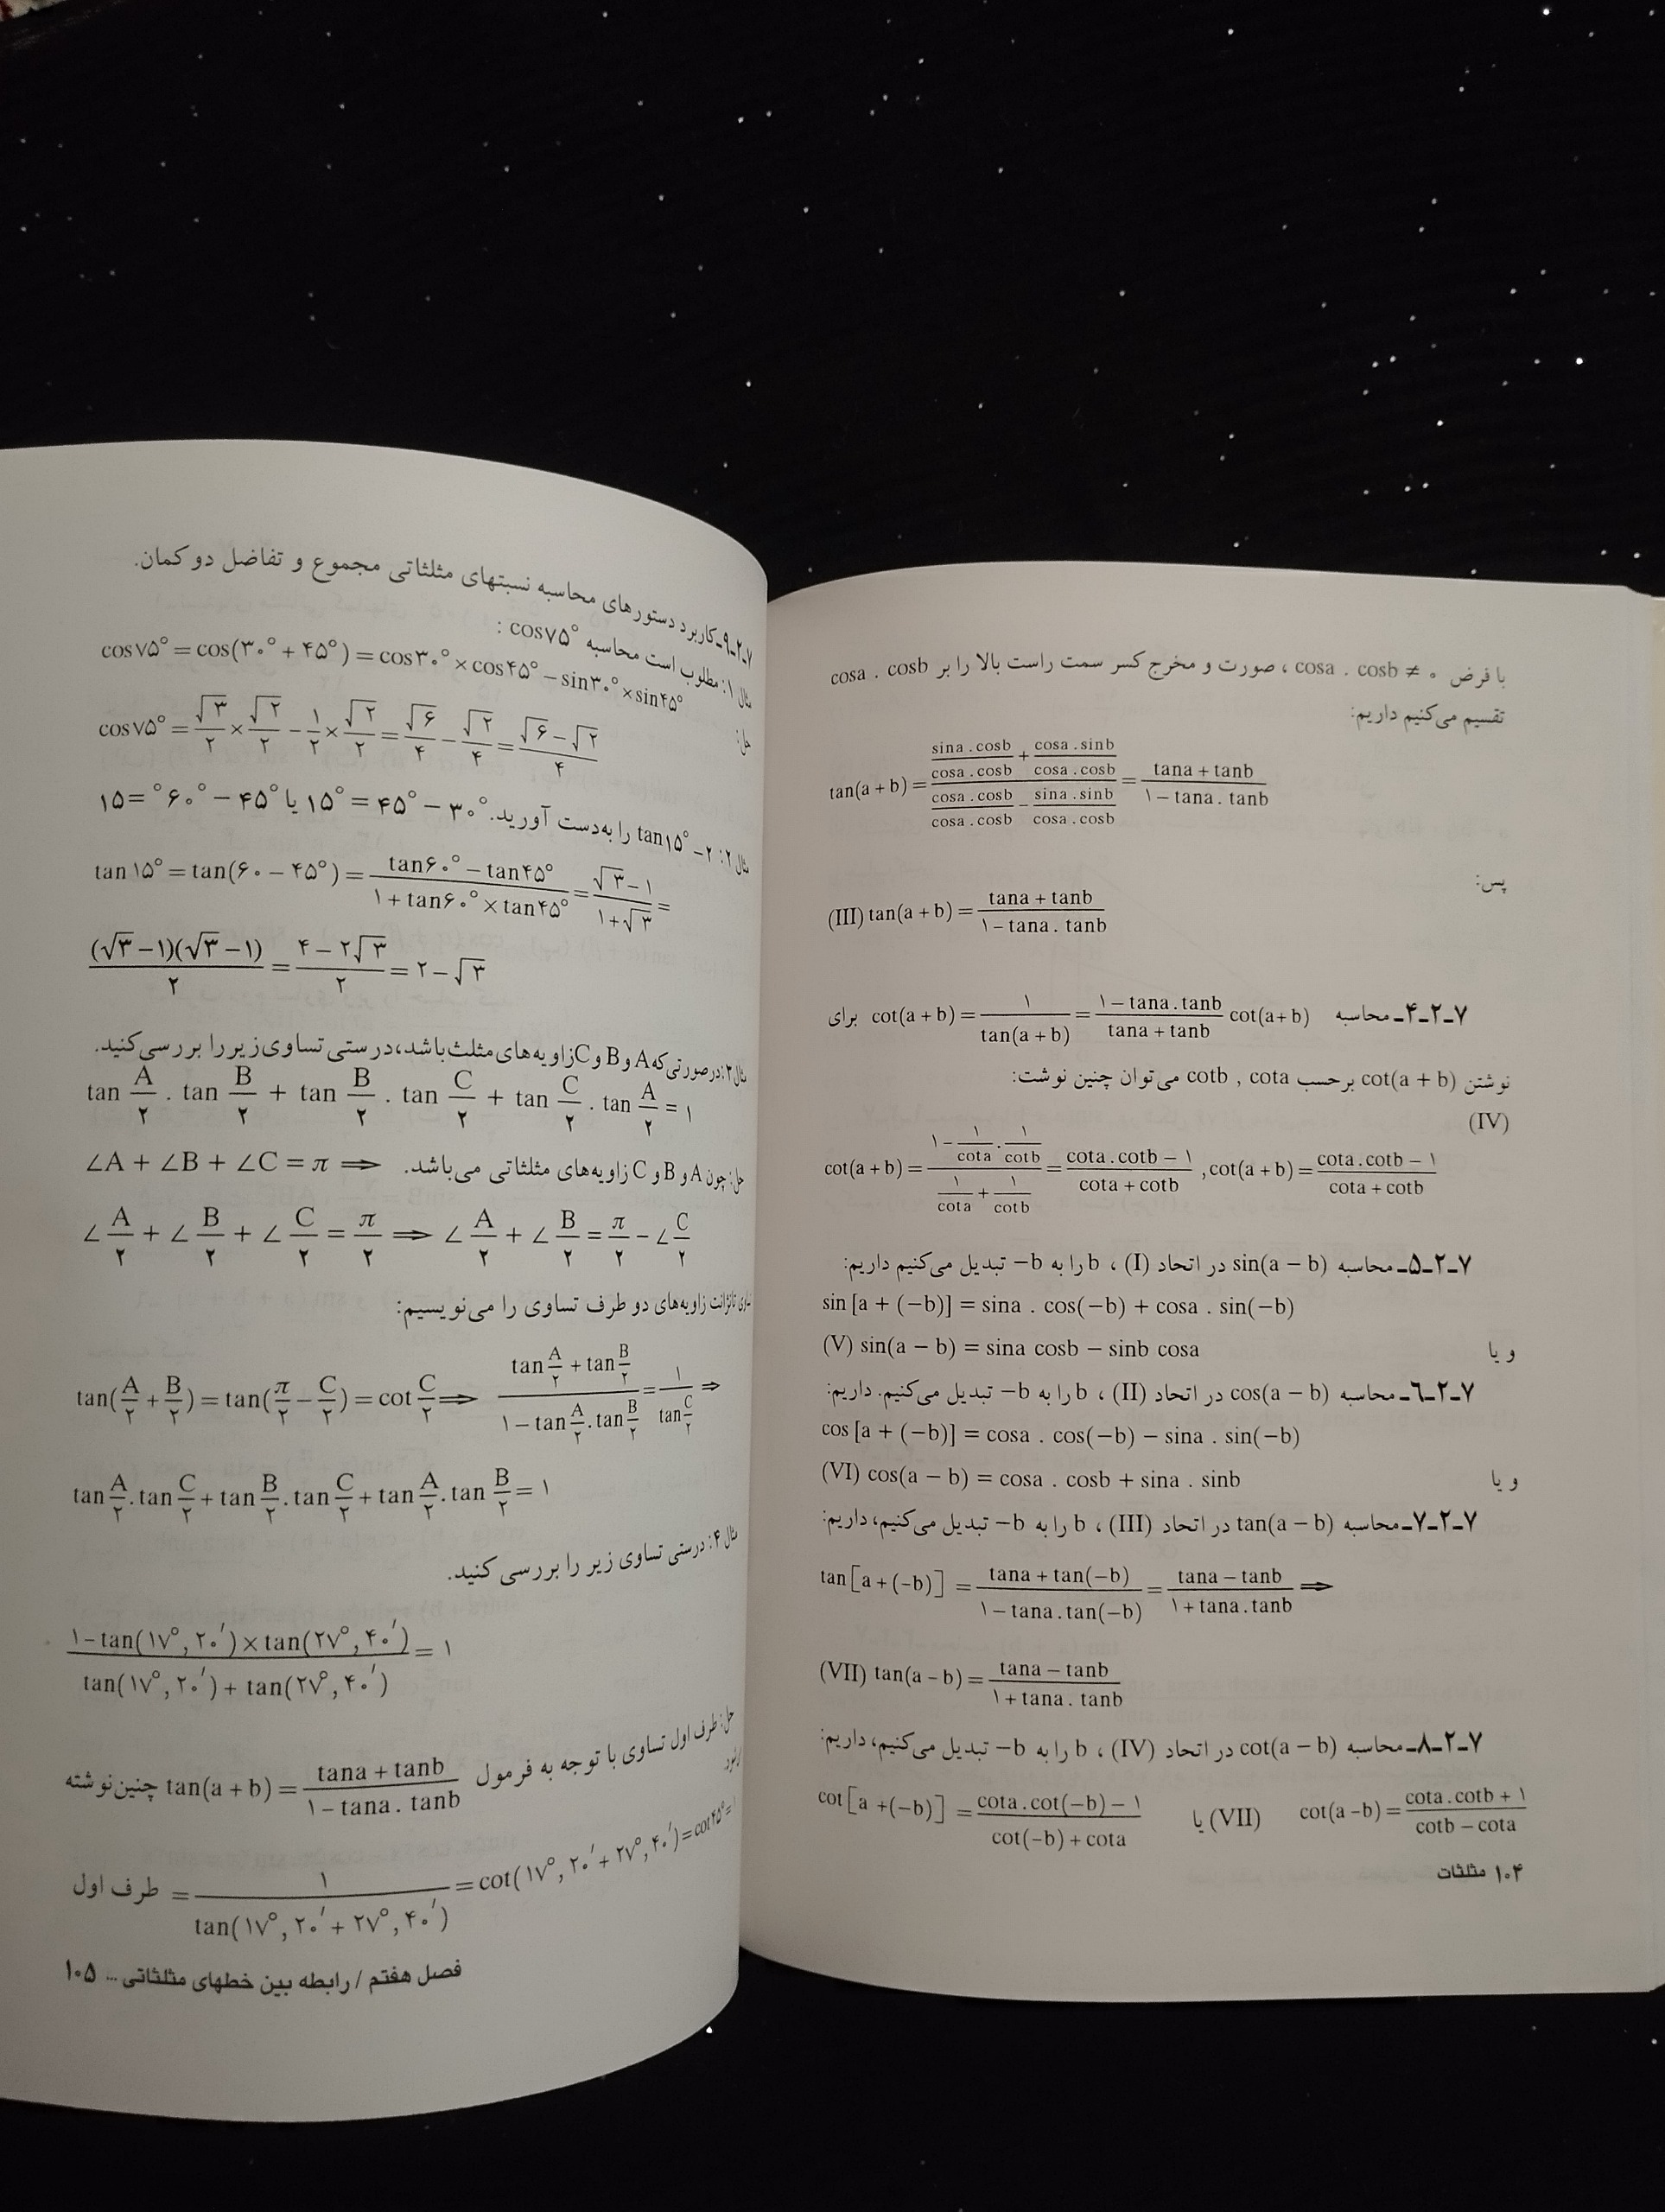 با فرض cosa . cosb ≠ ۰ ، صورت و مخرج کسر سمت راست بالا را بر cosa . cosb
تقسیم می‌کنیم داریم:
tan(a + b) = (sina . cosb / cosa . cosb + cosa . sinb / cosa . cosb) / (cosa . cosb / cosa . cosb − sina . sinb / cosa . cosb) = (tana + tanb) / (۱ − tana . tanb)
پس:
(III) tan(a + b) = (tana + tanb) / (۱ − tana . tanb)
۷ـ۲ـ۴ـ محاسبه cot(a + b) = ۱ / tan(a + b) = (۱ − tana . tanb) / (tana + tanb) cot(a + b) برای
نوشتن cot(a + b) برحسب cotb , cota می‌توان چنین نوشت:
(IV)
cot(a + b) = (۱ − ۱/cota . ۱/cotb) / (۱/cota + ۱/cotb) = (cota . cotb − ۱) / (cota + cotb) , cot(a + b) = (cota . cotb − ۱) / (cota + cotb)
۷ـ۲ـ۵ـ محاسبه sin(a − b) در اتحاد (I) ، b را به −b تبدیل می‌کنیم داریم:
sin [a + (−b)] = sina . cos(−b) + cosa . sin(−b)
و یا (V) sin(a − b) = sina cosb − sinb cosa
۷ـ۲ـ۶ـ محاسبه cos(a − b) در اتحاد (II) ، b را به −b تبدیل می‌کنیم. داریم:
cos [a + (−b)] = cosa . cos(−b) − sina . sin(−b)
و یا (VI) cos(a − b) = cosa . cosb + sina . sinb
۷ـ۲ـ۷ـ محاسبه tan(a − b) در اتحاد (III) ، b را به −b تبدیل می‌کنیم، داریم:
tan [a + (−b)] = (tana + tan(−b)) / (۱ − tana . tan(−b)) = (tana − tanb) / (۱ + tana . tanb) ⇒
(VII) tan(a − b) = (tana − tanb) / (۱ + tana . tanb)
۷ـ۲ـ۸ـ محاسبه cot(a − b) در اتحاد (IV) ، b را به −b تبدیل می‌کنیم، داریم:
cot [a + (−b)] = (cota . cot(−b) − ۱) / (cot(−b) + cota) یا (VII) cot(a − b) = (cota . cotb + ۱) / (cotb − cota)
۱۰۴ مثلثات
۷ـ۲ـ۹ـ کاربرد دستورهای محاسبه نسبتهای مثلثاتی مجموع و تفاضل دو کمان.
مثال ۱: مطلوب است محاسبه cos۷۵° :
cos۷۵° = cos(۳۰° + ۴۵°) = cos۳۰° × cos۴۵° − sin۳۰° × sin۴۵°
حل: cos۷۵° = √۳/۲ × √۲/۲ − ۱/۲ × √۲/۲ = √۶/۴ − √۲/۴ = (√۶ − √۲)/۴
مثال ۲: ۲− tan۱۵° را به‌دست آورید. ۱۵° = ۴۵° − ۳۰° یا ۱۵ = ۶۰° − ۴۵°
tan ۱۵° = tan(۶۰ − ۴۵°) = (tan۶۰° − tan۴۵°) / (۱ + tan۶۰° × tan۴۵°) = (√۳ − ۱) / (۱ + √۳) =
(√۳ − ۱)(√۳ − ۱) / ۲ = (۴ − ۲√۳) / ۲ = ۲ − √۳
مثال ۳: در صورتی‌که A و B و C زاویه‌های مثلث باشد، درستی تساوی زیر را بررسی کنید.
tan A/۲ . tan B/۲ + tan B/۲ . tan C/۲ + tan C/۲ . tan A/۲ = ۱
حل: چون A و B و C زاویه‌های مثلثاتی می‌باشد. ∠A + ∠B + ∠C = π ⇒
∠A/۲ + ∠B/۲ + ∠C/۲ = π/۲ ⇒ ∠A/۲ + ∠B/۲ = π/۲ − ∠C/۲
تساوی تانژانت زاویه‌های دو طرف تساوی را می‌نویسیم:
tan(A/۲ + B/۲) = tan(π/۲ − C/۲) = cot C/۲ ⇒ (tan A/۲ + tan B/۲) / (۱ − tan A/۲ . tan B/۲) = ۱ / tan C/۲ ⇒
tan A/۲ . tan C/۲ + tan B/۲ . tan C/۲ + tan A/۲ . tan B/۲ = ۱
مثال ۴: درستی تساوی زیر را بررسی کنید.
(۱ − tan(۱۷°, ۲۰′) × tan(۲۷°, ۴۰′)) / (tan(۱۷°, ۲۰′) + tan(۲۷°, ۴۰′)) = ۱
حل: طرف اول تساوی با توجه به فرمول tan(a + b) = (tana + tanb) / (۱ − tana . tanb) چنین نوشته
طرف اول = ۱ / tan(۱۷°, ۲۰′ + ۲۷°, ۴۰′) = cot(۱۷°, ۲۰′ + ۲۷°, ۴۰′) = cot۴۵° =
فصل هفتم / رابطه بین خطهای مثلثاتی ... ۱۰۵